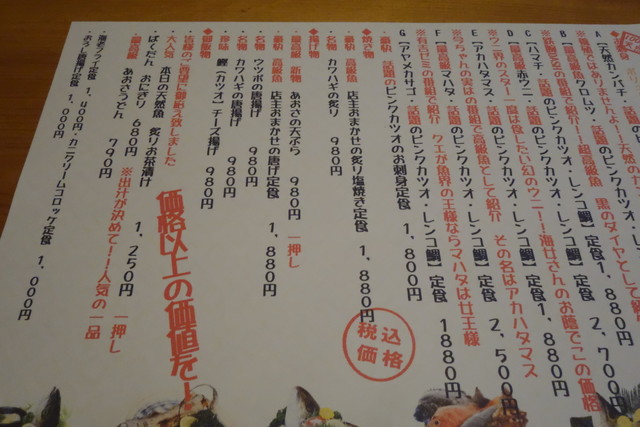 A【天然カンパチ・話題のピンクカツオ・レンコ鯛】定食 1,880円
B【最高級クロムツ・話題のピンクカツオ・レンコ鯛】定食 2,700円
C【ハマチ・話題のピンクカツオ・レンコ鯛】定食 1,880円
D【最高級赤ウニ・話題のピンクカツオ・レンコ鯛】定食
※ウニ界のスター!一度は食したい幻のウニ!!海女さんのお蔭でこの価格
E【アカハタマス・話題のピンクカツオ・レンコ鯛】定食 2,500円
※今ちゃんの実はの番組で高級魚として紹介 その名はアカハタマス
F【最高級マハタ・話題のピンクカツオ・レンコ鯛】定食 1880円
※有吉ゼミの番組で紹介 クエが魚界の王様ならマハタは女王様
G【アヤメカサゴ・話題のピンクカツオのお刺身定食 1,800円
◆焼き物
・最朝 高級魚 店主おまかせの炙り塩焼き定食 1,880円
・名物 カワハギの炙り 980円
◆揚げ物
・最高級 新物 あおさの天ぷら 980円 一押し
・最朝 高級魚 店主おまかせの唐げ定食 1,880円
・名物 ウツボの唐揚げ 980円
・名物 カワハギの唐揚げ 980円
・珍味 鰹(カツオ)チーズ揚げ 980円
◆御飯物
・皆様のご要望に御給え致しました 価格以上の価値を!
・大人気 本日の天然魚 炙りお茶漬け 1,250円
・ばくだん おにぎり 680円
・最高級 あおさうどん 790円 ※出汁が決めて!!人気の一品 一押し
・海老フライ定食 1,400円・カニクリームコロッケ定食 1,000円
・おろし唐揚げ定食 1,000円
税込
価格